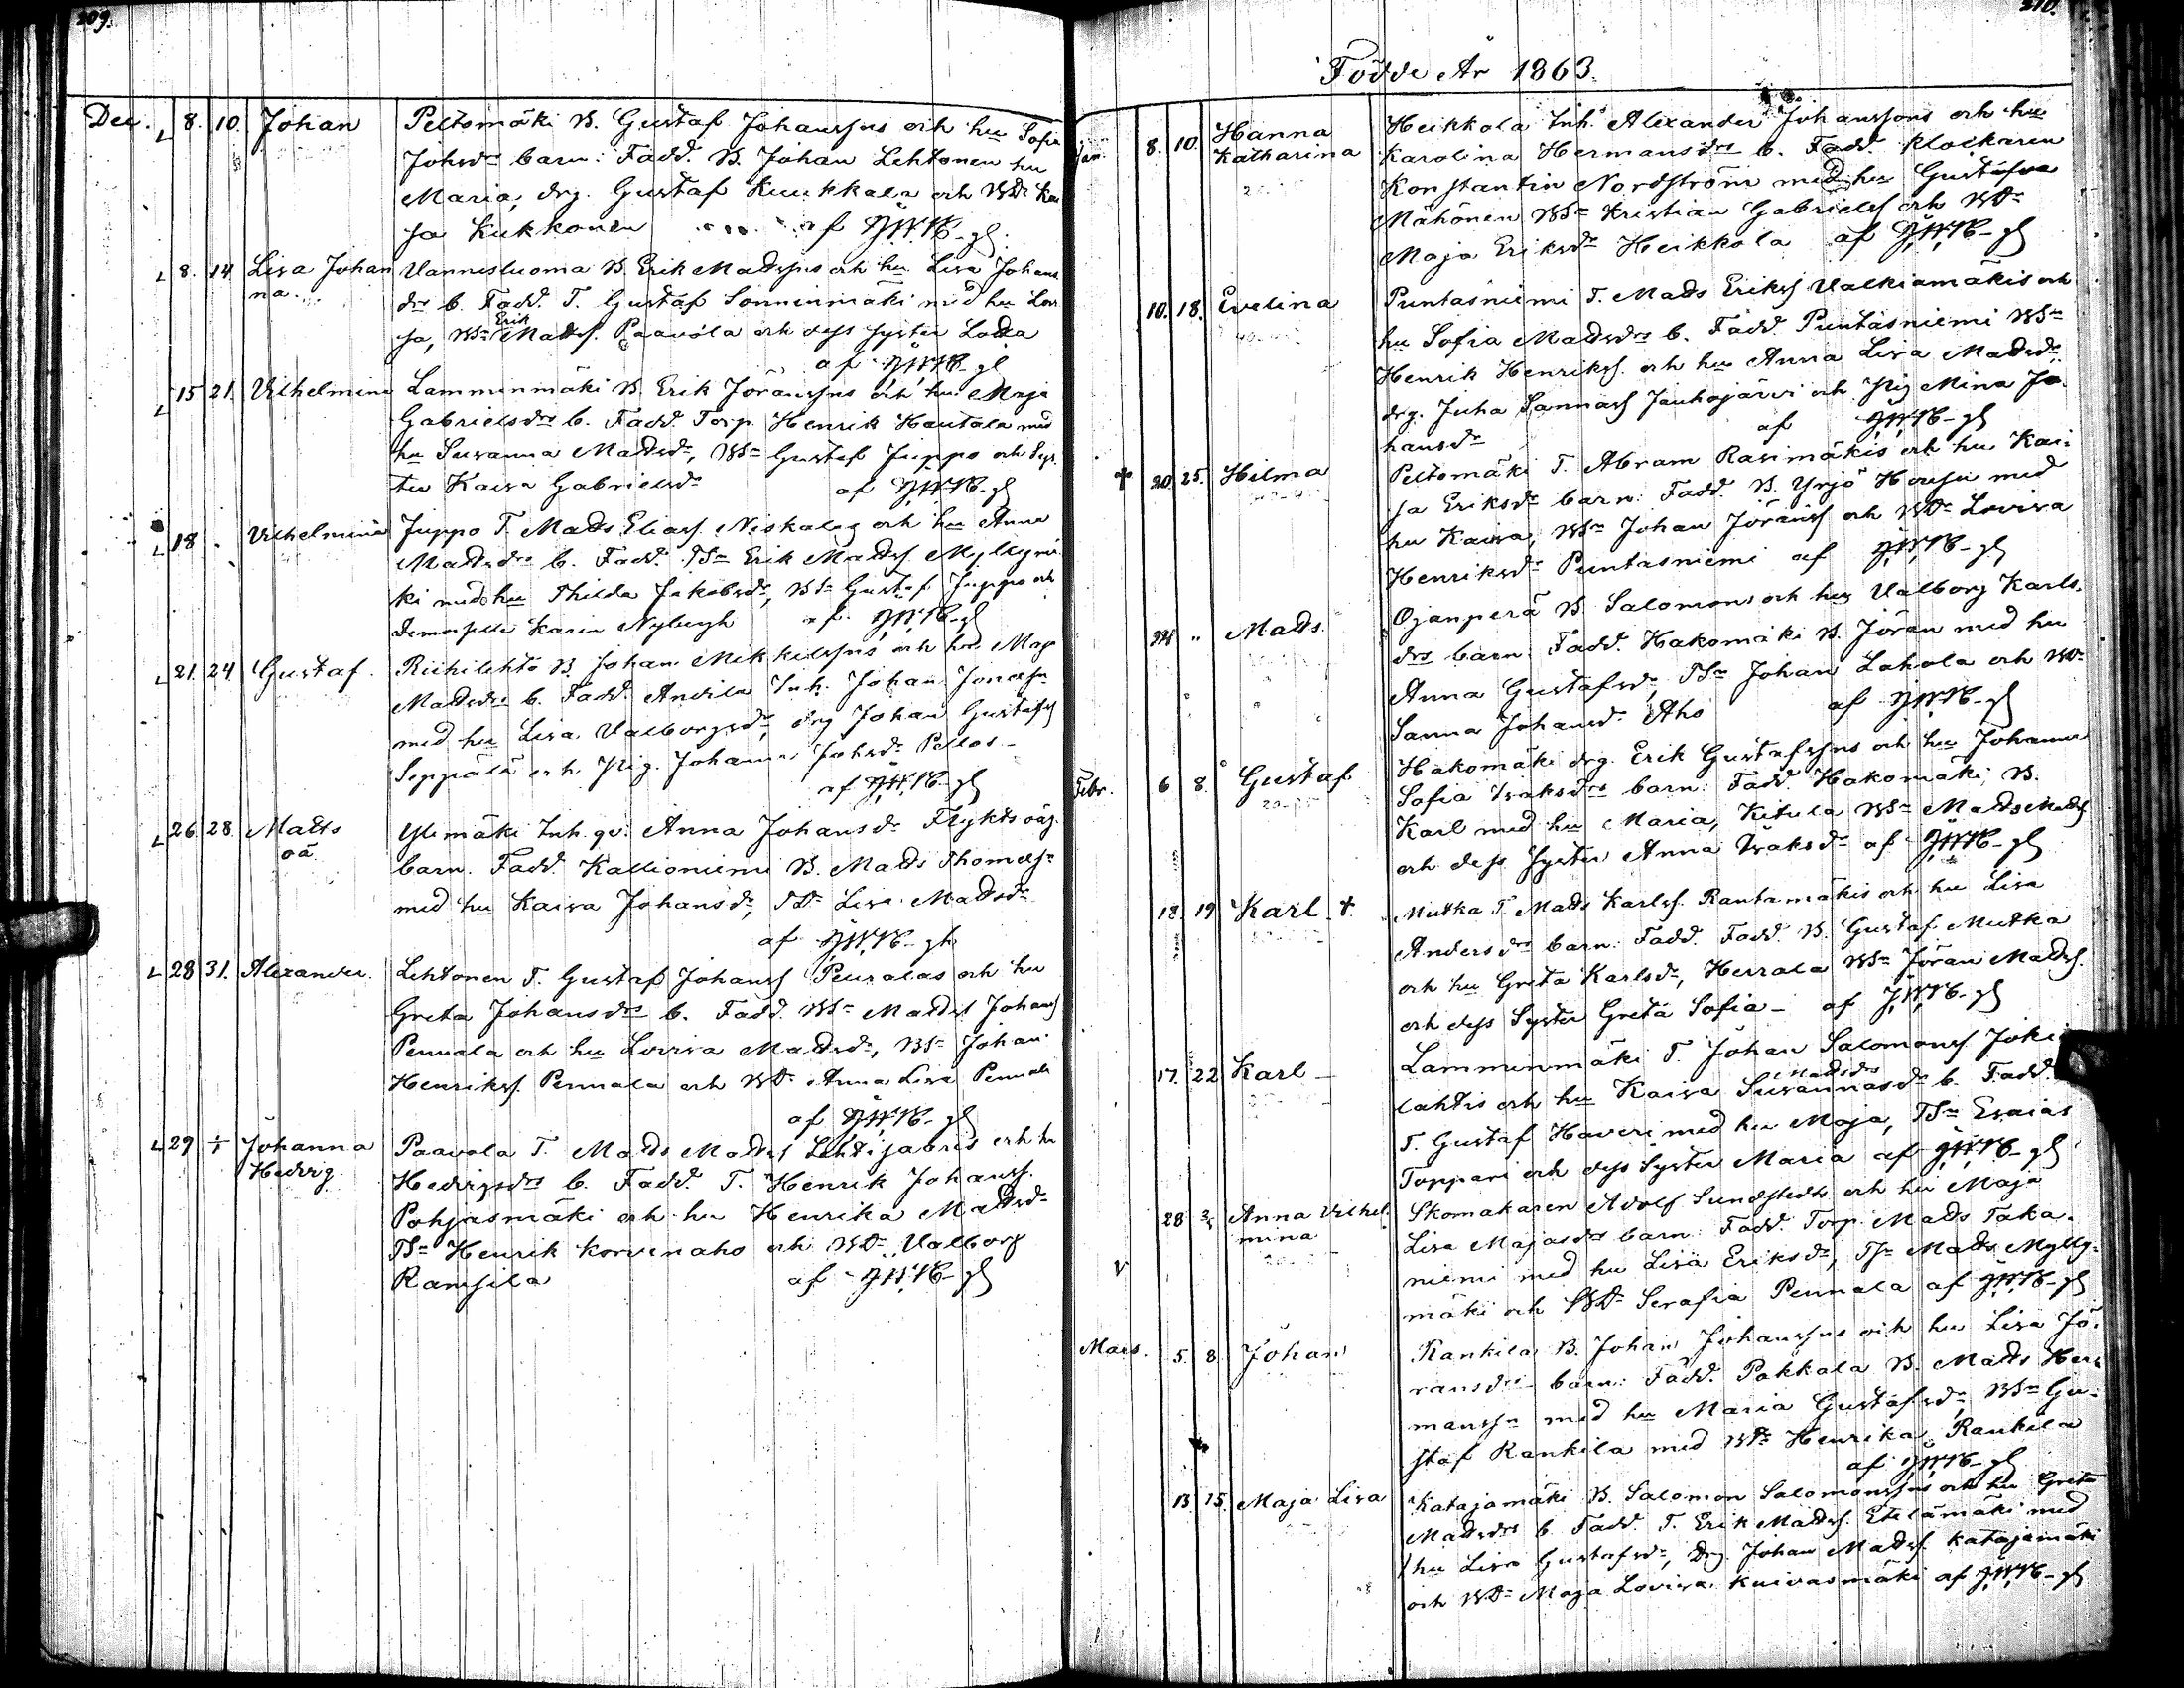 209.
Dec. 8. 10. Johan Peltomäki B. Gustaf Johanssns och hu Sofia
Johsdrs barn: Fadd. B. Johan Lehtonen hu
Maria, drg. Gustaf Kuukkala och BDr Kai
sa Kukkonen af
8. 14. Lisa Johan Vannesluoma B. Erik Madssns och hu Lisa Johans
na. drs b. Fadd. T. Gustaf Sonninmäki med hu Lovi
Erik
sa, BSn Madss. Paavola och dess syster Lodta
af
15 21. Vilhelmina Lamminmäki B. Erik Jöranssns och hu Maja
Gabrielsdrs b. Fadd. Torp. Henrik Hautala med
hu Susanna Madsdr, BSn Gustaf Juppo och Sys
ter Kaisa Gabrielsdr af
18 " Vilhelmina Juppo T. Mads Eliass. Niskalas och hu Anna
Madsdrs b. Fadd. BSn Erik Madss. Myllymä
ki med hu Thilda Jakobsdr, BSn Gustaf Juppo och
demoiselle Karin Nybergh af
21. 24 Gustaf. Riihilehto B. Johan Mikkelssns och hu Maja
Madsdrs b. Fadd. Anvila Inh. Johan Jonassn
med hu Lisa Valborgsdr, drg Johan Gustafss
Seppälä och Pig. Johanna Johsdr Pellos-
af
26. 28. Matts Ylimäki Inh. qv. Anna Johansdr Flykts oäg.
oä barn. Fadd. Kallioniemi B. Mads Thomassn
med hu Kaisa Johansdr, Dr Lisa Madsdr
af
28 31. Alexander. Lehtonen T. Gustaf Johanss Peuralas och hu
Greta Johansdrs b. Fadd. BSn Madss Johanss
Pennala och hu Lovisa Madsdr, BSn Johan
Henrikss. Pennala och BDr Anna Lisa Pennala
af
29 Johanna Paavola T. Mads Madss Lehtijabris och hu
Hedvig Hedvigsdrs b. Fadd. T. Henrik Johanss.
Pohjasmäki och hu Henrika Madsdr
TSn Henrik Korvenaho och BDr Valborg
Ransila af
210.
Födde År 1863.
Jan. 8. 10. Hanna Heikkola Inh. Alexander Johanssons och hu
Katharina Karolina Hermansdrs b. Fadd. Klockaren
Konstantin Nordström med hu Gustafva
Mähönen BSn Kristian Gabrielss och BDr
Maja Eriksdr Heikkola af
10. 18. Evelina Puntasniemi T. Mads Erikss Valkiamäkis och
hu Sofia Madsdrs b. Fadd. Puntasniemi BSn
Henrik Henrikss. och hu Anna Lisa Madsdr.
drg. Juha Sannass Jauhojärvi och Pig Mina Jo-
hansdr af
† 20. 25. Hilma Peltomäki T. Abram Rasimäkis och hu Kai-
sa Eriksdr barn: Fadd. B. Yrjö med
hu Kaisa, BSn Johan Jöranss och BDr Lovisa
Henriksdr Puntasniemi af
24 " Mads. Ojanperä B. Salomons och hu Valborg Karls-
drs barn: Fadd. Hakomäki B. Jöran med hu
Anna Gustafsdr, TSn Johan Lahola och BDr
Sanna Johansdr Aho af
Febr. 6 8. Gustaf Hakomäki drg. Erik Gustafssns och hu Johanna
Sofia Isaksdrs barn: Fadd. Hakomäki B.
Karl med hu Maria, Ketula BSn Mads Madss
och dess syster Anna Isaksdr af
18. 19 Karl † Mutka T. Mads Karlss. Rantamäkis och hu Lisa
Andersdrs barn: Fadd. Fadd. B. Gustaf Mutka
och hu Greta Karlsdr, Herrala BSn Jöran Madss.
och dess Syster Greta Sofia- af
17. 22 Karl - Lamminmäki T. Johan Salomonss Joki-
Madsdrs
lahtis och hu Kaisa Susannasdr b. Fadd.
T. Gustaf Haveri med hu Maja, TSn Esaias
Toppari och dess Syster Maria af
28 Anna Vilhel- Skomakaren Adolf Sundstedts och hu Maja
mina Lisa Majasdrs barn: Fadd. Torp. Mads Taka-
niemi med hu Lisa Eriksdr, TSn Mads Mylly-
mäki och BDr Serafia Pennala af
Mars. 5. 8. Johan Rankila B. Johan Johanssns och hu Lisa Jö-
ransdrs barn: Fadd. Pakkala B. Mads Her-
manssn med hu Maria Gustafsdr, BSn Gu-
staf Rankila med BDr Henrika Rankila
af
13. 15. Maja Lisa Katajamäki B. Salomon Salomonssns och hu Greta
Madsdrs b. Fadd. T. Erik Madss. Etelämäki med
hu Lisa Gustafsdr, Drg. Johan Madss. Katajamäki
och BDr Maja Lovisa Kuivasmäki af